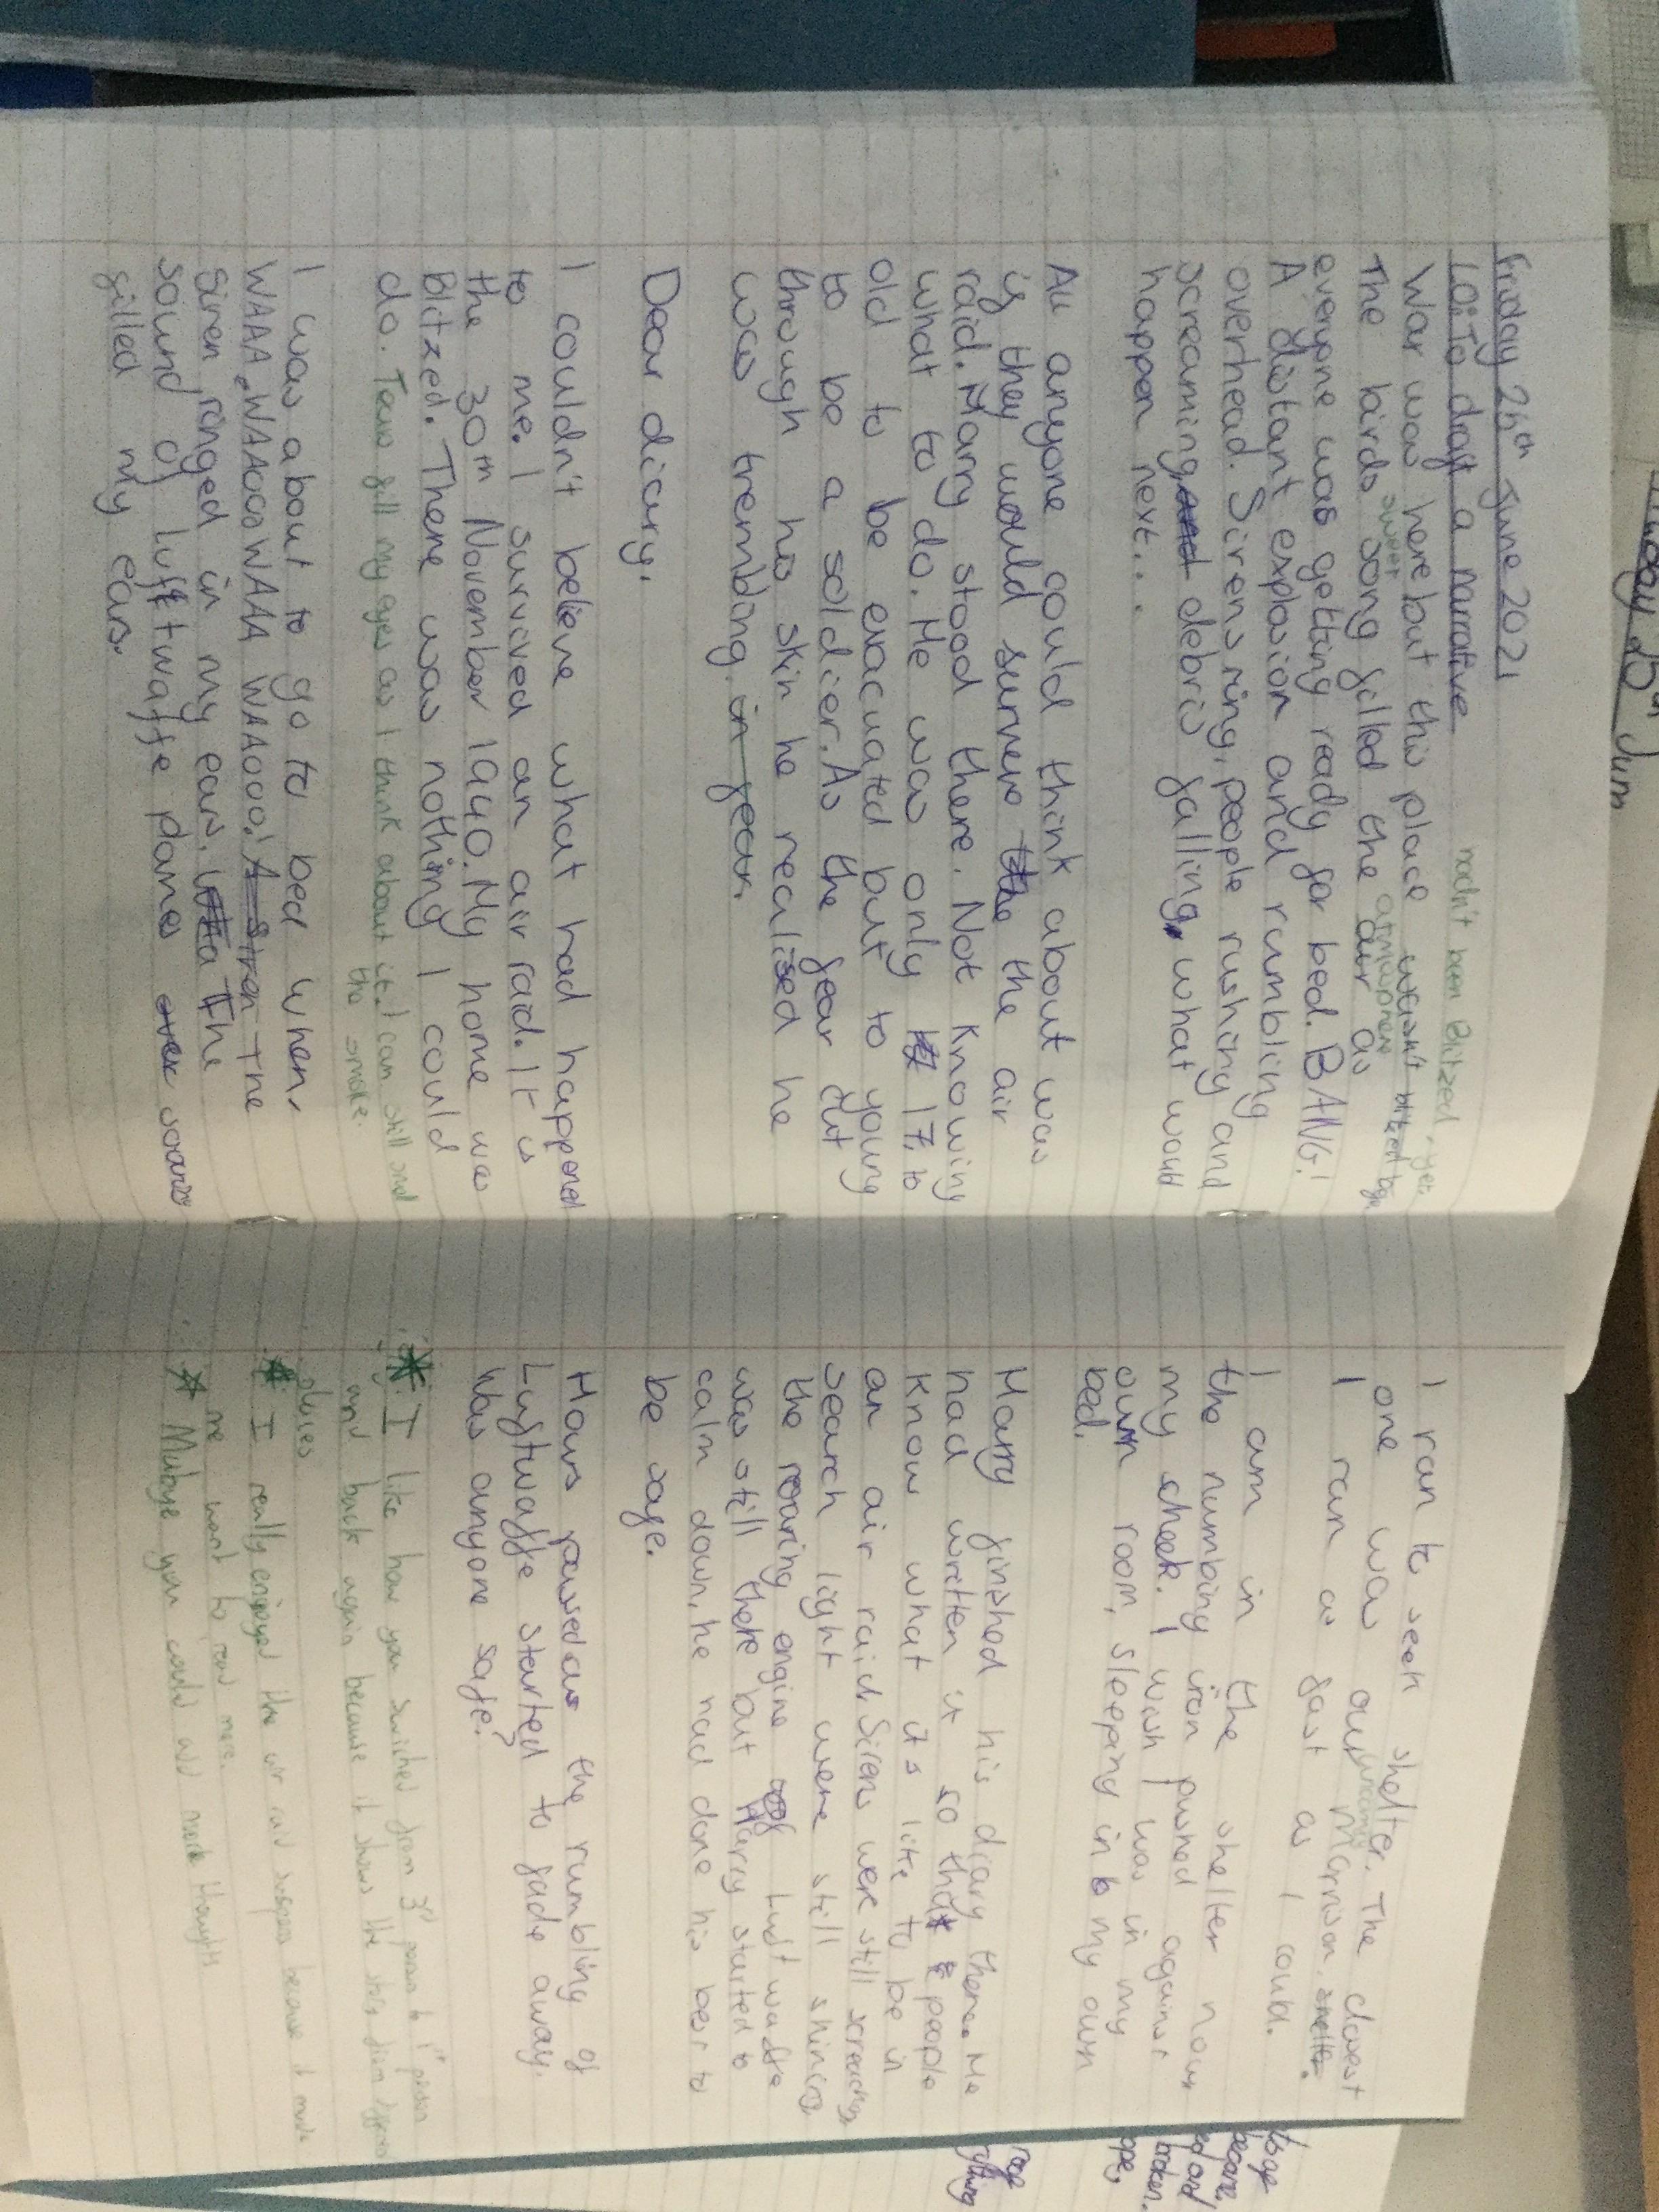 Friday 25th June 2021
LO: To draft a narrative
hadn't been Blitzed, yet
War was here but this place wasn't blitzed
sweet atmosphere
The birds song filled the air as
everyone was getting ready for bed. BANG!
A distant explosion and rumbling
overhead. Sirens ring, people rushing and
screaming, and debris falling, what would
happen next...
All anyone could think about was
if they would survive the the air
raid. Harry stood there. Not knowing
what to do. He was only 17, to
old to be evacuated but to young
to be a soldier. As the fear cut
through his skin he realised he
was trembling in fear.
Dear diary,
I couldn't believe what had happened
to me. I survived an air raid. It is
the 30th November 1940. My home was
Blitzed. There was nothing I could
do. Tears fill my eyes as I think about it. I can still smell
the smoke.
I was about to go to bed when,
WAAA, WAAOOO WAAA WAAOOO! A siren The
siren ringed in my ears. The
sound of luftwaffe planes over
filled my ears.
I ran to seek shelter. The closest
one was our Morrison shelter.
I ran as fast as I could.
I am in the shelter now
the numbing iron pushed against
my cheek. I wish I was in my
own room, sleeping in my own
bed.
Harry finished his diary there. He
had written it so that people
know what it's like to be in
an air raid. Sirens were still screeching,
search light were still shining
the roaring engine of Luftwaffe
was still there but Harry started to
calm down, he had done his best to
be safe.
Hours passed as the rumbling of
Luftwaffe started to fade away.
Was anyone safe?
I like how you switched from 3rd person to 1st person
and back again because it shows the story from different
places
I really enjoyed the air raid suspens because it made
me want to read more.
Mabye you could add more thoughts
25th June